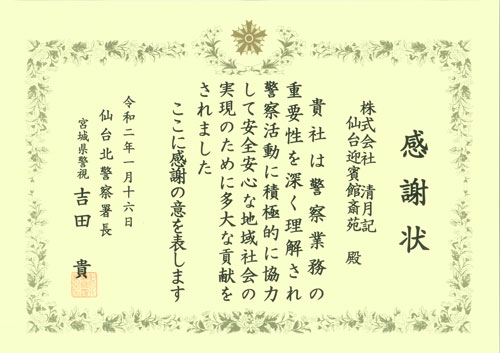 感謝状
株式会社 清月記
仙台迎賓館斎苑 殿
貴社は警察業務の
重要性を深く理解され
警察活動に積極的に協力
して安全安心な地域社会の
実現のために多大な貢献を
されました
ここに感謝の意を表します
令和二年一月十六日
仙台北警察署長
宮城県警視 吉田 貴